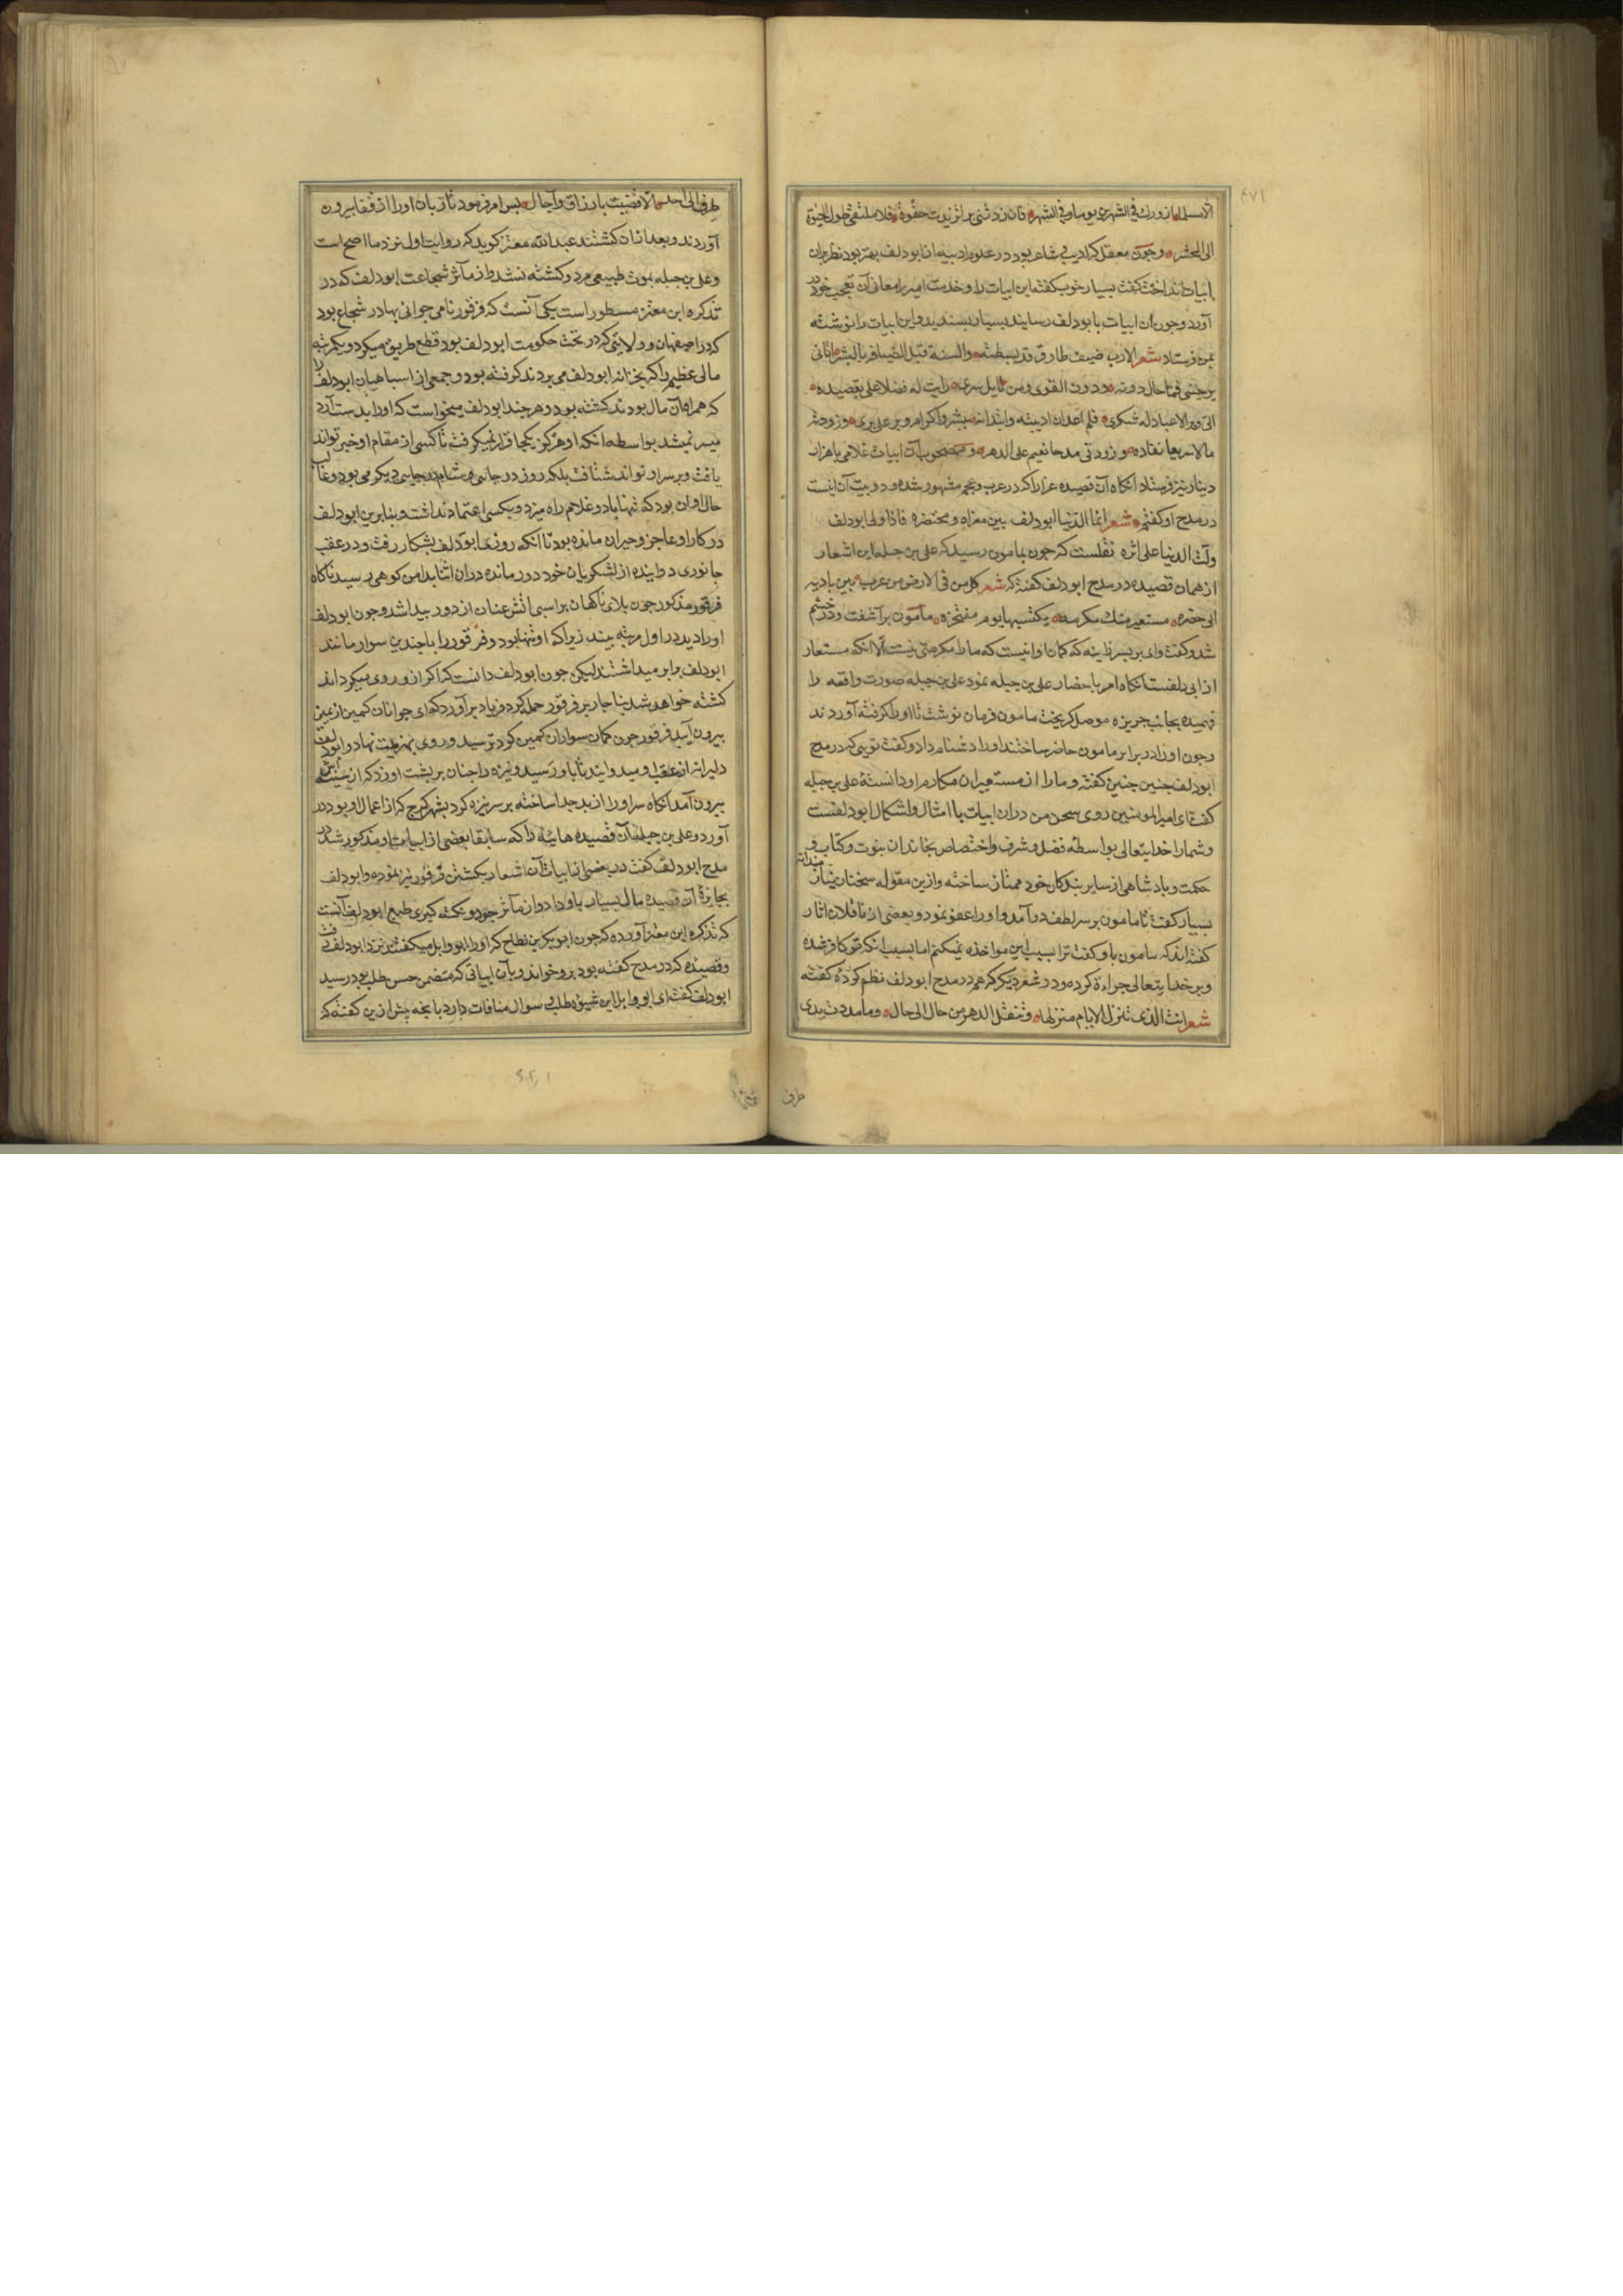 ٤٧١
الا مسلما ازورك فی الشهرین یوما و فی الشهر فان زدتنی برا تزیدت جفوة فلا ملتقی طول الحیوة
الی الحشر و چون معقل که ادیب و شاعر بود و در علوم ادبیه از ابودلف بهتر بود نظر بران
ابیات انداخت گفت بسیار خوب گفته این ابیات را و خدمت امیر را معانی آن تعجب خواهد
آورد و چون آن ابیات بابودلف رسانید بسیار پسندید و این ابیات را نوشته
بمن فرستاد شعر الا رب ضیف طارق قد بسطته و آنسته قبل الضیافة بالبشر اتانی
یرجینی فما حال دونه و دون القری من نایل سره رایت له فضلا علی بقصیده
الی و بر الا عبادله شکری فلم اعد ان ادنیته و ابتداته ببشر و اکرام و بر علی بر و زودته
مالا سریعا نفاده و زودنی مدحا یقیم علی الدهر و مصحوب آن ابیات غلامی با هزار
دینار نیز فرستاد آنکاه آن قصیده غرا را که در عرب و عجم مشهور شده و دو بیت آن اینست
در مدح او گفتم شعر انما الدنیا ابودلف بین مغزاه و محتضره فاذا ولی ابودلف
ولت الدنیا علی اثره نقلست که چون بمامون رسید که علی بن جبله این اشعار
از همان قصیده در مدح ابودلف گفته که شعر کل من فی الارض من عرب بین بادیه
الی حضره مستعیر منك مکرمة یکتسیها یوم مفتخره مامون برآشفت و در خشم
شد و گفت وای بر پسر زانیه که گمان او انیست که ما را مکرمتی نیست الا انکه مستعار
از ابی دلفست آنکاه امر باحضار علی بن جبله نمود علی بن جبله صورت واقعه را
فهمیده بجانب جزیره موصل کریخت مامون فرمان نوشت تا او را کرفته آوردند
و چون او را در برابر مامون حاضر ساختند او را دشنام داد و گفت تویی که در مدح
ابودلف چنین چنین گفته و ما را از مستعیران مکارم او دانستهٔ علی بن جبله
گفت ای امیر المومنین روی سخن من در ان ابیات با امثال و اشکال ابودلفست
و شما را خدایتعالی بواسطه فضل و شرف و اختصاص بخاندان نبوت و کتاب و
حکمت و پادشاهی از سایر بندکان خود ممتاز ساخته و ازین مقوله سخنان نیاز مندانه
بسیار گفت تا مامون بر سر لطف در آمد و او را عفو نمود و بعضی از ناقلان اثار
گفته اند که مامون باو گفت ترا بسبب این مواخذه نمیکنم اما بسبب انکه تو کافر شده
و بر خدا یتعالی جراءة کرده و در شعر دیکر که هم در مدح ابودلف نظم کردهٔ گفته
شعر انت الذی تنزل الایام منزلها و تنقل الدهر من حال الی حال و ما مددت یدی
طرف
طرف الی احد الا قضیت بارزاق و آجال پس امر فرمود تا زبان او را از قفا بیرون
آوردند و بعد از ان کشتند عبد الله معتز کوید که روایت اول نزد ما اصح است
و علی بن جبله بموت طبیعی مرد و کشته نشد و از مآثر شجاعت ابودلف که در
تذکره ابن معتز مسطور است یکی آنست که فرقور نامی جوانی بهادر شجاع بود
که در اصفهان و ولایتی که در تحت حکومت ابودلف بود قطع طریق میکرد و یکمرتبه
مالی عظیم را که بخزانه ابودلف می بردند کرفته بود و جمعی از سپاهیان ابودلف را
که همراه آن مال بودند کشته بود و هر چند ابودلف میخواست که او را بدست آرد
میسر نمیشد بواسطه انکه او هرکز یکجا قرار نمیکرفت تا کسی از مقام او خبر تواند
یافت و بر سر او تواند شتافت بلکه روز در جایی و شام در جایی دیکر می بود و غالب
حال او ان بود که تنها با دو غلام راه میزد و بکسی اعتماد نداشت و بنابرین ابودلف
در کار او عاجز و حیران مانده بود تا آنکه روزی ابودلف بشکار رفت و در عقب
جانوری دوانیده از لشکریان خود دور مانده در ان اثنا بدامن کوهی رسید ناکاه
فرقور مذکور چون بلای ناکهان بر اسبی آتش عنان از دور پیدا شد و چون ابودلف
او را دید در اول مرتبه بیند زیرا که او تنها بود و فرقور را با چندین سوار مانند
ابودلف برابر میداشتند لیکن چون ابودلف دانست که اکر از و روی میکرداند
کشته خواهد شد بناچار بر فرقور حمله کرد و فریاد برآورد که ای جوانان کمین از یمین
بیرون آیید فرقور چون کمان سواران کمین کرد ترسید و روی بهزیمت نهاد و ابودلف
دلیرانه از عقب او میدوانید تا باو رسید و نیزه را چنان بر پشت او زد که از سینه اش
بیرون آمد آنکاه سر او را از بدن جدا ساخته بر سر نیزه کرد بشهر کرج که از اعمال او بود در
آورد و علی بن جبله آن قصیده هائیه را که سابقا بعضی از ابیات او مذکور شد در
مدح ابودلف گفت و در بعضی از ابیات آن اشعار بکشتن فرقور نیز نموده و ابودلف
بجایزهٔ آن قصیده مال بسیار باو داد و از مآثر جود و نکته کیری طبع ابودلف آنست
که تذکره ابن معتز آورده که چون ابوبکر بن نطاح که او را ابو وایل میکفتند نزد ابودلف رفت
و قصیده که در مدح گفته بود برو خواند و بآن ابیاتی که متضمن حسن طلب بود رسید
ابودلف گفت ای ابو وایل این شیوه طلب و سوال منافات دارد با نچه پیش ازین گفته که